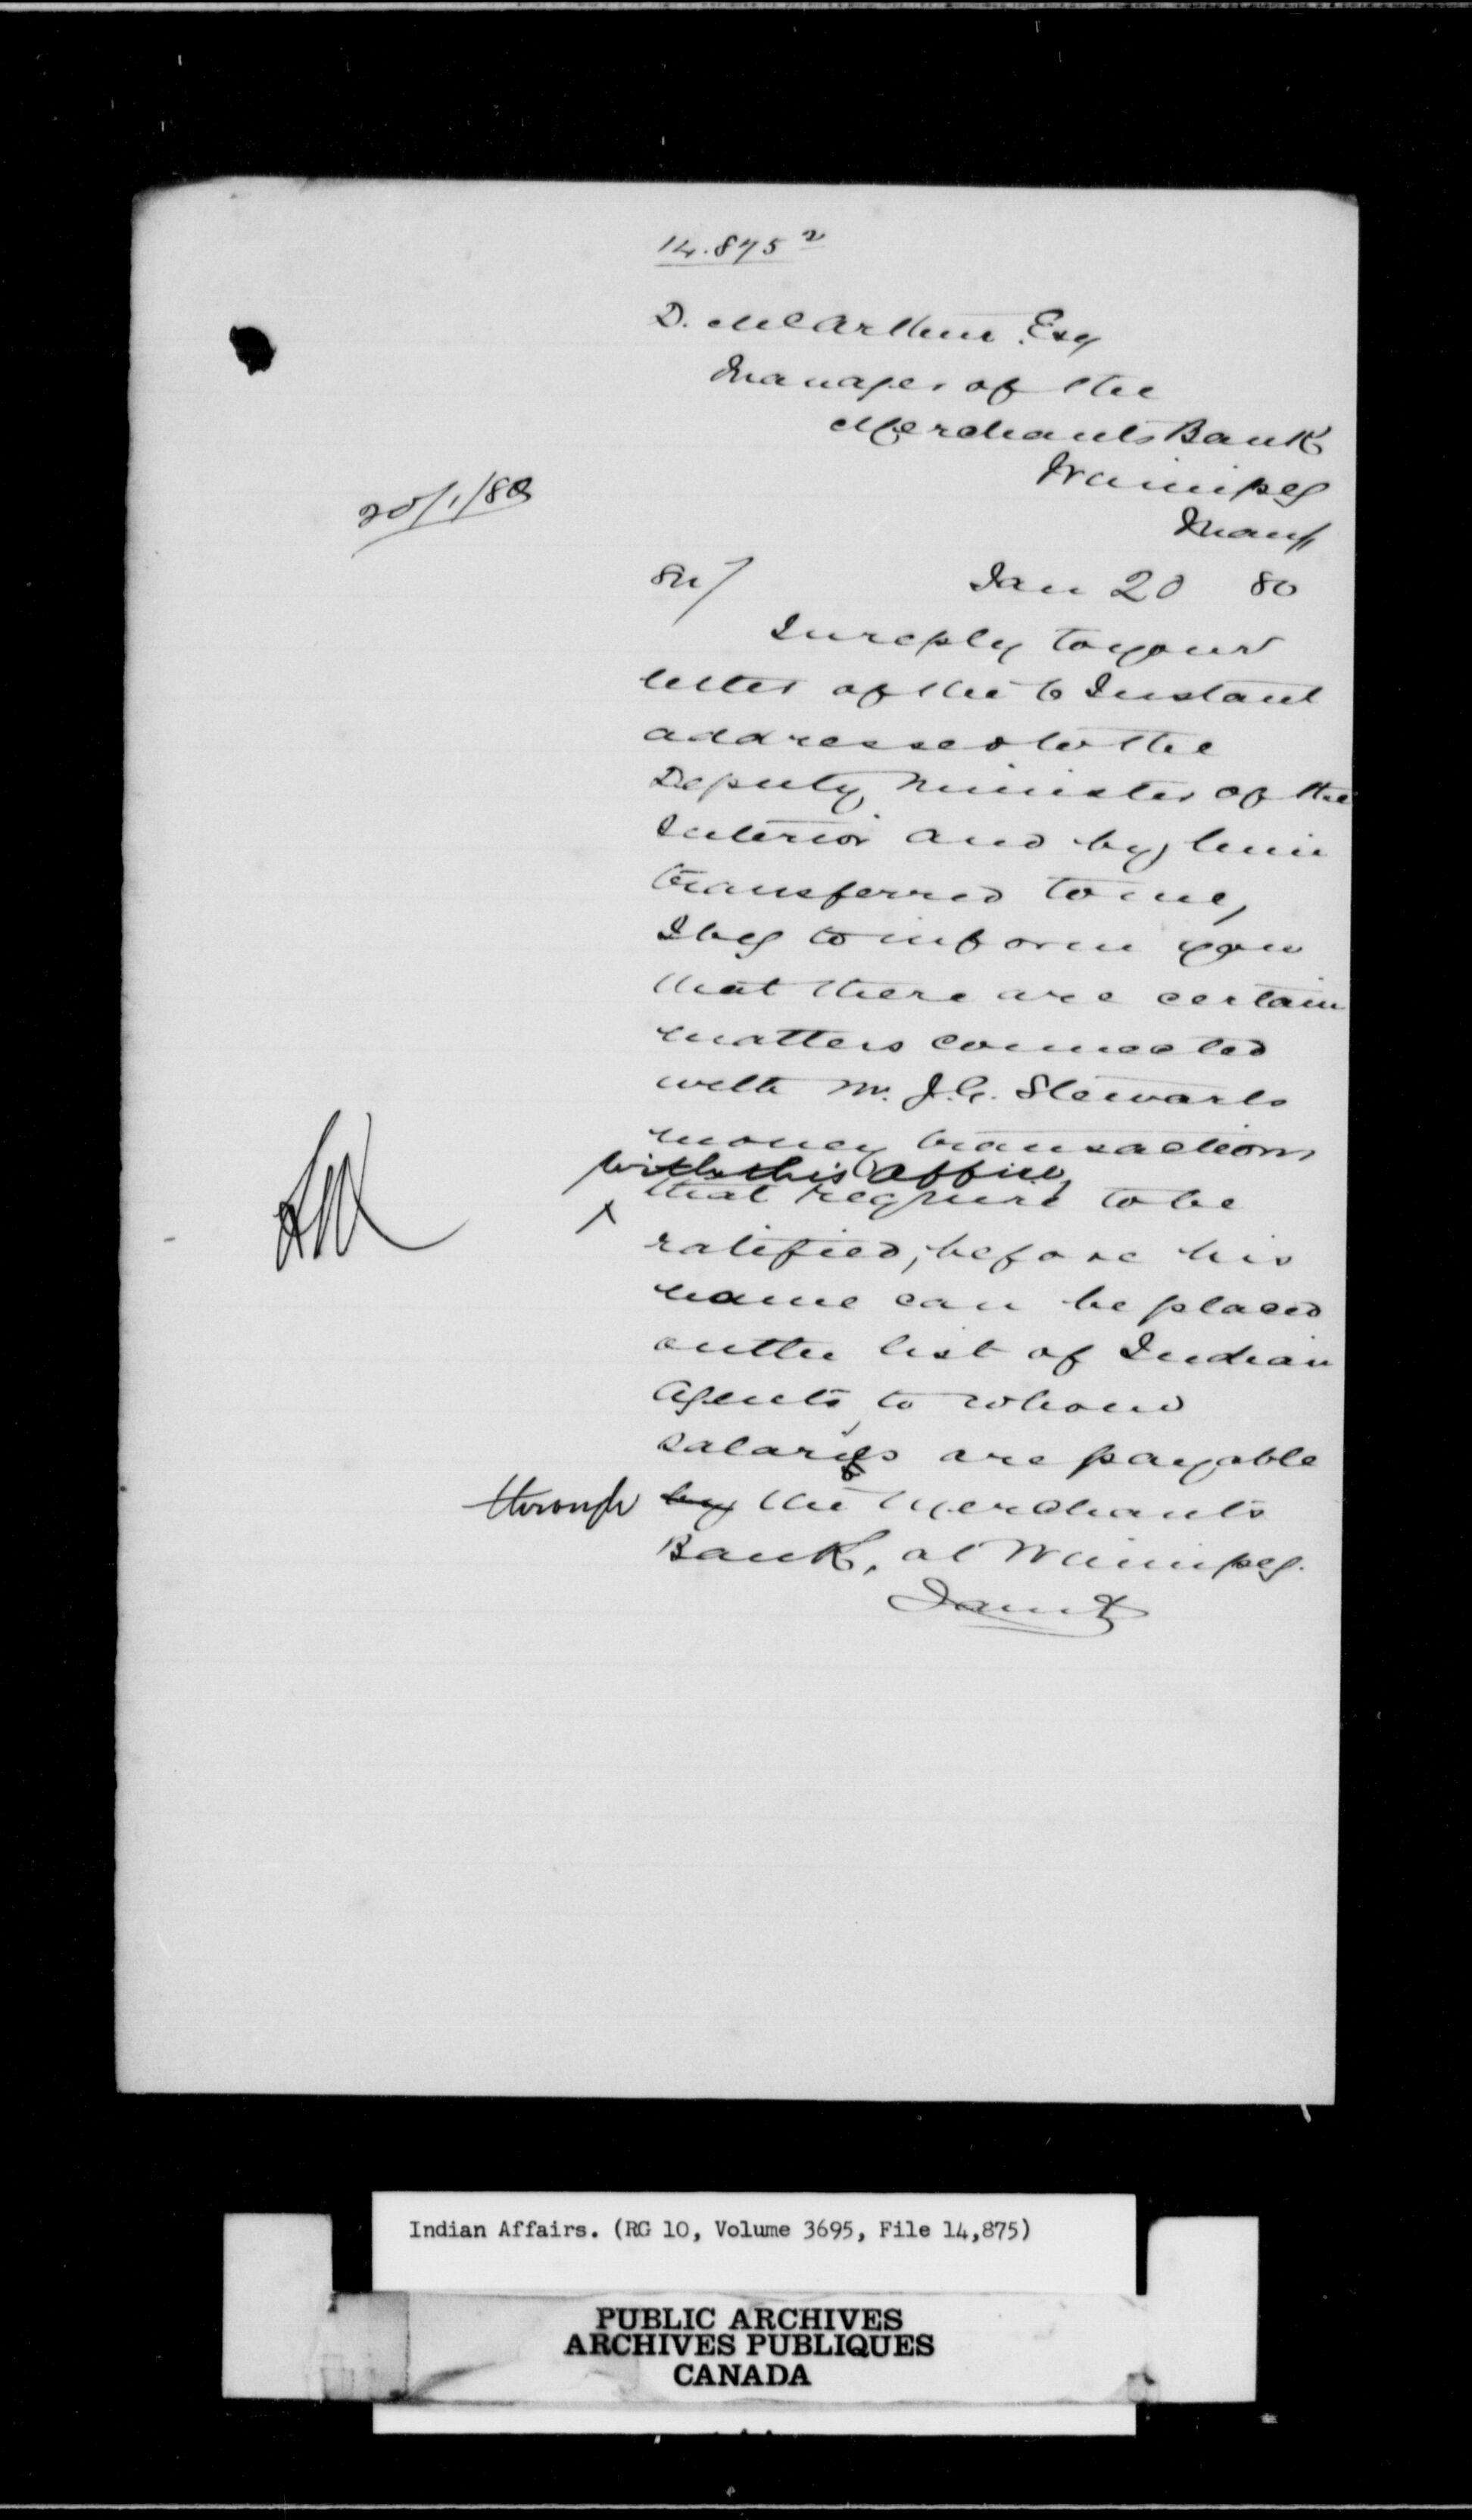 14.875 2
D. McArthur Esq
Manager of the
Merchants Bank
Winnipeg
Man
20/1/80
Sir/ Jan 20 80
In reply to your
letter of the 6 Instant
addressed to the
Deputy Minister of the
Interior and by him
transferred to me,
I beg to inform you
that there are certain
matters connected
with Mr. J.G. Stewarts
money transactions
with this office,
that require to be
ratified, before his
name can be placed
on the list of Indian
Agents to whom
salaries are payable
through by the Merchants
Bank, at Winnipeg.
I am &
Indian Affairs. (RG 10, Volume 3695, File 14,875)
PUBLIC ARCHIVES
ARCHIVES PUBLIQUES
CANADA